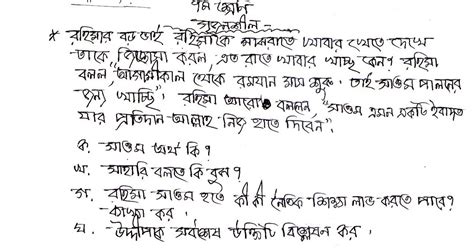 ৭ম শ্রেণি
সৃজনশীল-
* রহিমার বড় ভাই রহিমাকে মাঝরাতে খাবার খেতে দেখে
তাকে জিজ্ঞাসা করল, এত রাতে খাবার খাচ্ছ কেন? রহিমা
বলল, "আগামীকাল থেকে রমযান মাস শুরু। তাই সাওম পালনের
জন্য খাচ্ছি"। রহিমা আরো বললেন, "সাওম এমন একটি ইবাদত
যার প্রতিদান আল্লাহ নিজ হাতে দিবেন"।
ক. সাওম অর্থ কি?
খ. সাহারি বলতে কি বুঝ?
গ. রহিমা সাওম হতে কী কী নৈতিক শিক্ষা লাভ করতে পারে?
ব্যাখ্যা কর।
ঘ. উদ্দীপকে সর্বশেষ উক্তিটি বিশ্লেষণ কর।